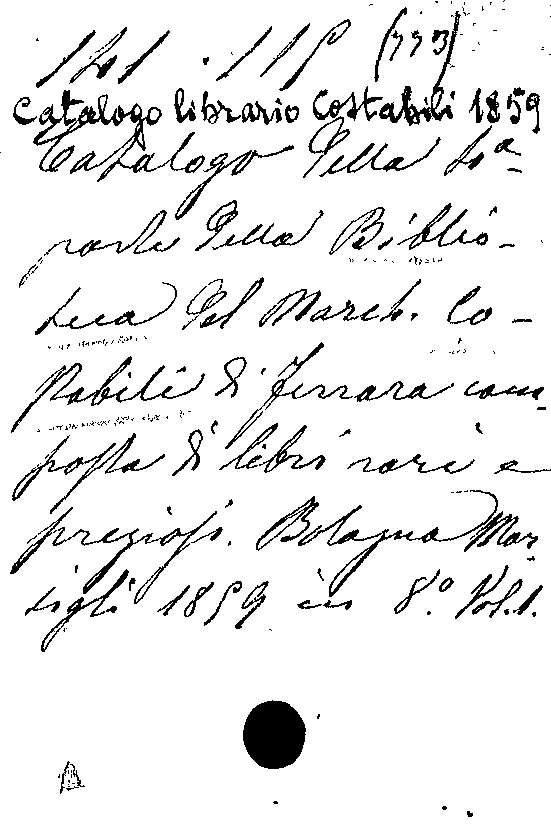 141 . 115 (773)
Catalogo librario Costabili 1859
Catalogo della 4ª
parte della Biblio-
teca del March. Co-
stabili di Ferrara com-
posta di libri rari e
preziosi. Bologna Mar-
sigli 1859 in 8.º Vol. 1.